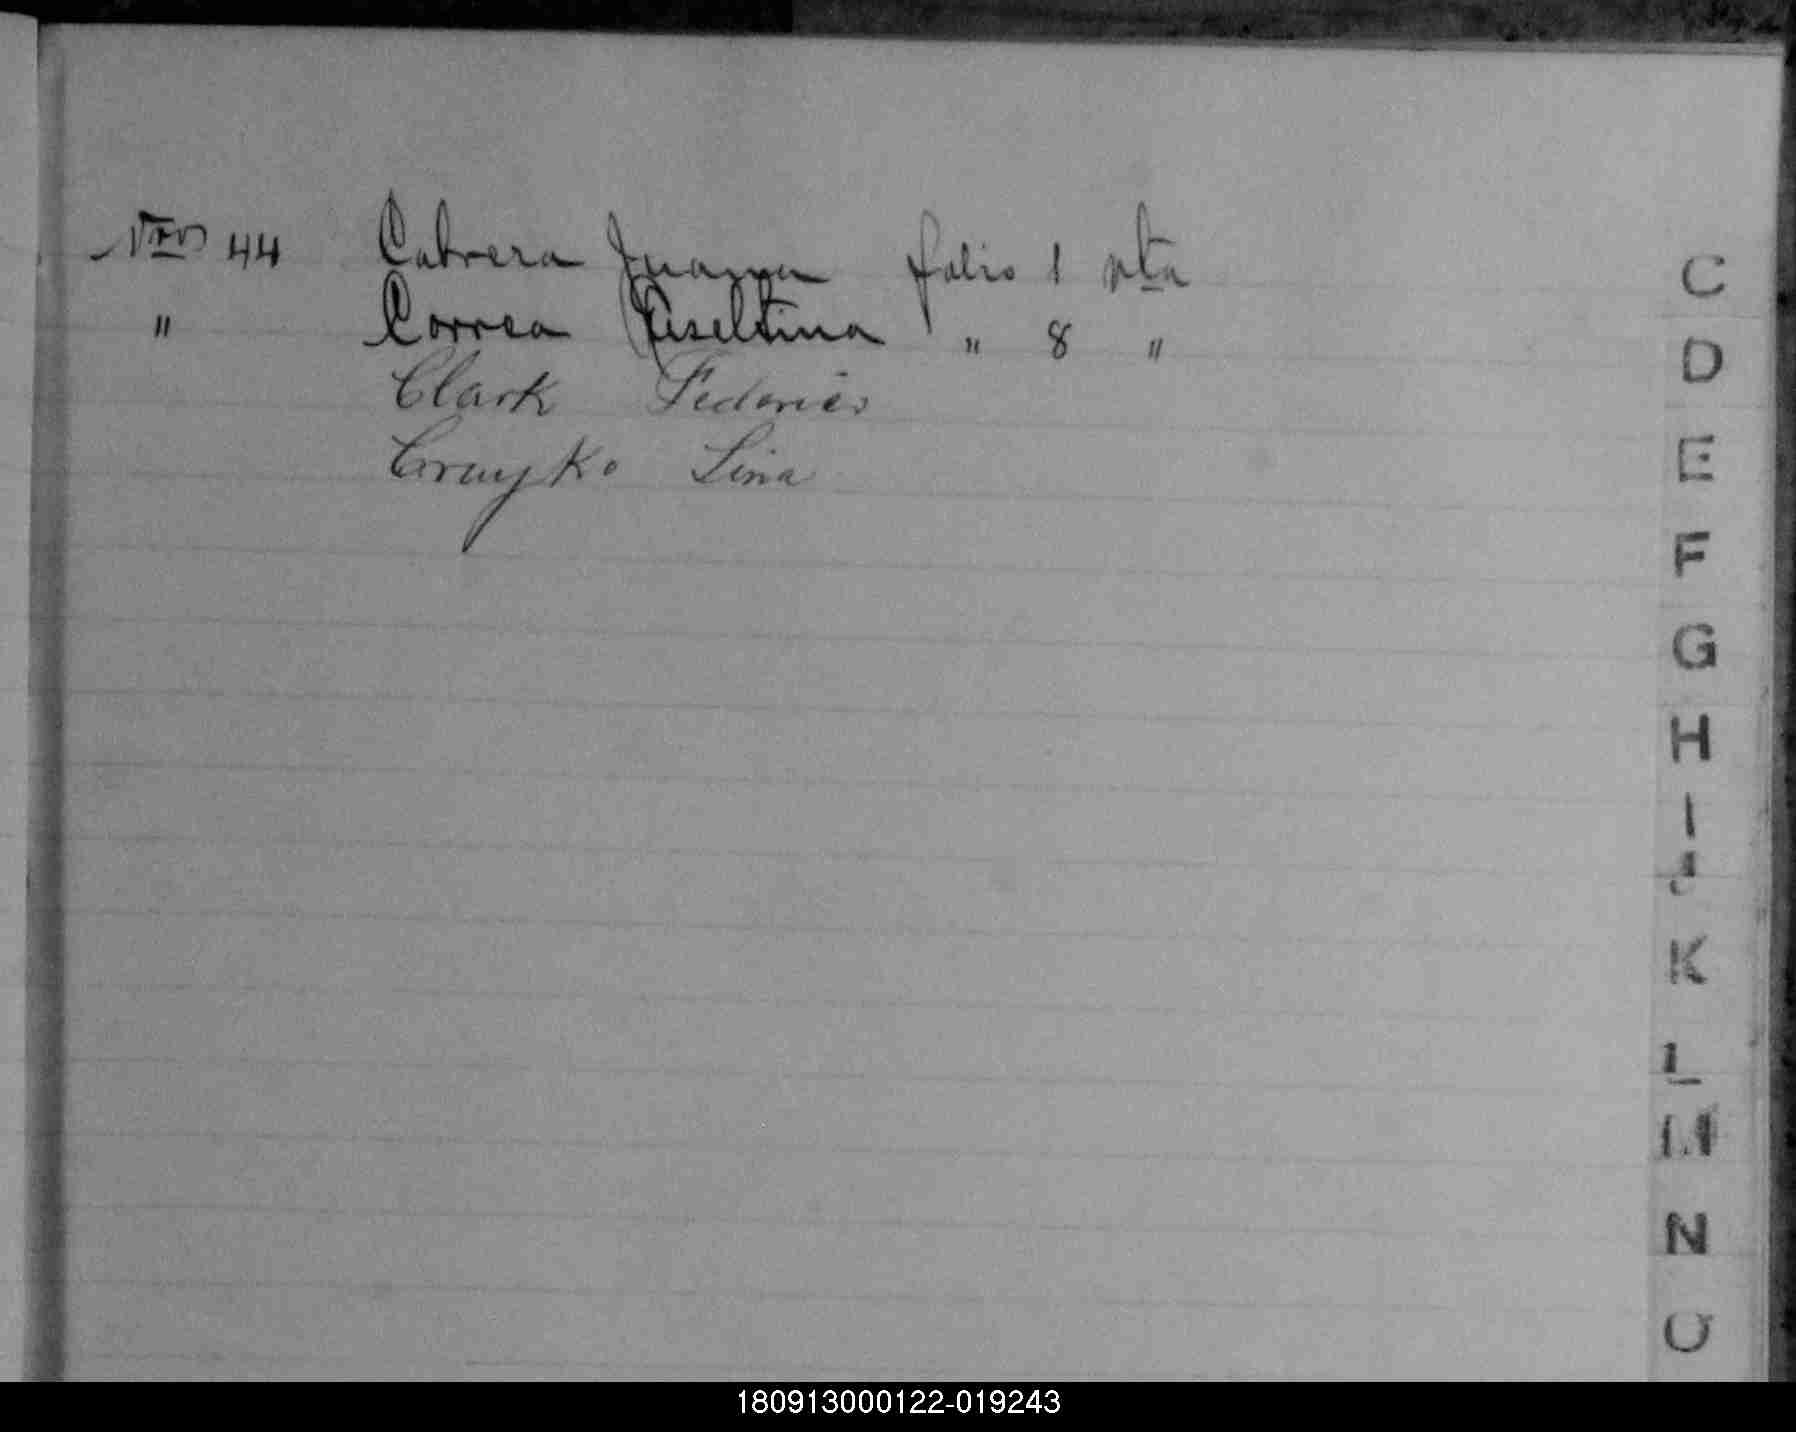 Nros 44 Cabrera Juana folio 1 vta
" Correa " 8 "
Clark Federico
Cruyko Lina
C
D
E
F
G
H
I
J
K
L
M
N
O
180913000122-019243